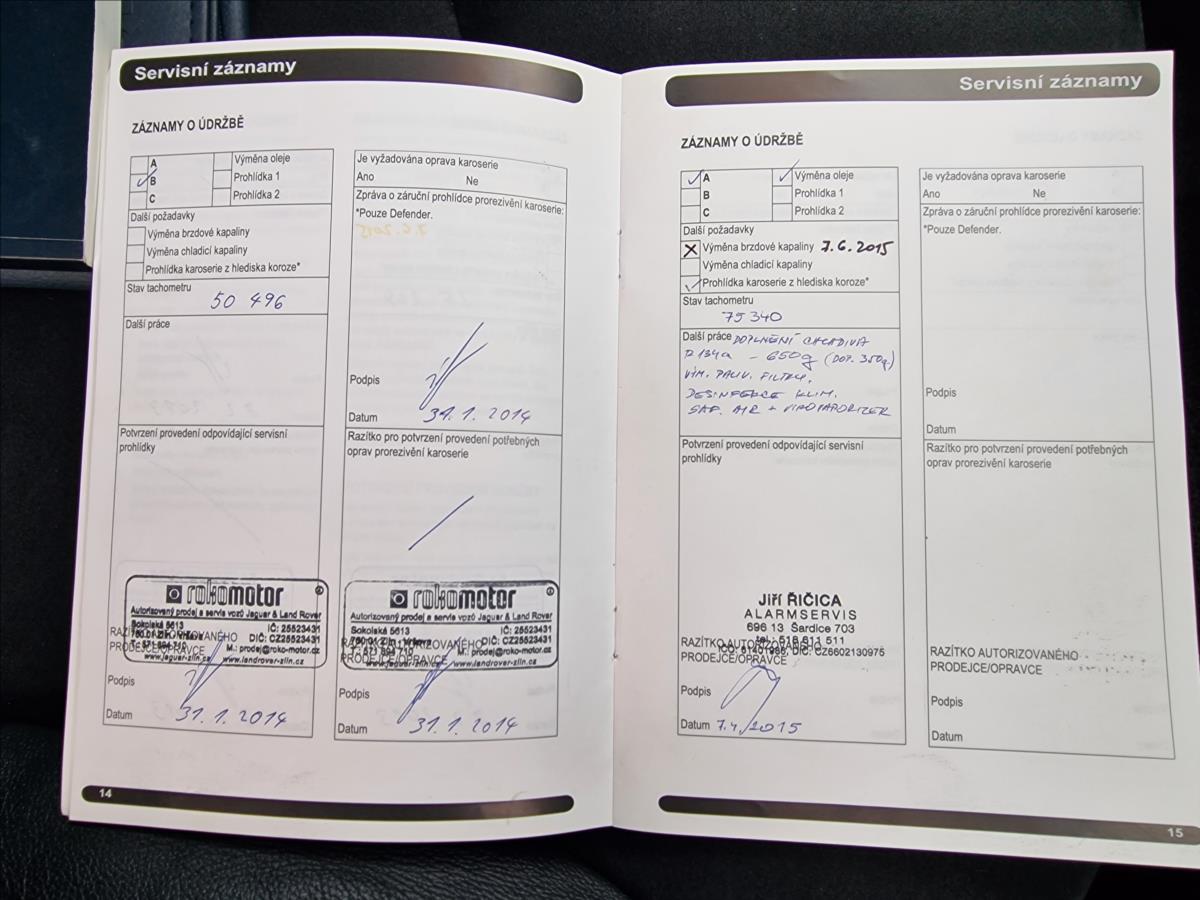 Servisní záznamy
ZÁZNAMY O ÚDRŽBĚ
A
B
C
Výměna oleje
Prohlídka 1
Prohlídka 2
Další požadavky
Výměna brzdové kapaliny
Výměna chladicí kapaliny
Prohlídka karoserie z hlediska koroze*
Stav tachometru
50 496
Další práce
Potvrzení provedení odpovídající servisní
prohlídky
rokomotor
Autorizovaný prodej a servis vozů Jaguar & Land Rover
Sokolská 5613
IČ: 25523431
DIČ: CZ25523431
M.: prodej@roko-motor.cz
www.jaguar-zlin.cz
www.landrover-zlin.cz
RAZÍTKO AUTORIZOVANÉHO
PRODEJCE/OPRAVCE
Podpis
Datum 31.1.2014
Je vyžadována oprava karoserie
Ano Ne
Zpráva o záruční prohlídce prorezivění karoserie:
*Pouze Defender.
Podpis
Datum 31.1.2014
Razítko pro potvrzení provedení potřebných
oprav prorezivění karoserie
rokomotor
Autorizovaný prodej a servis vozů Jaguar & Land Rover
Sokolská 5613
IČ: 25523431
DIČ: CZ25523431
M.: prodej@roko-motor.cz
www.jaguar-zlin.cz
www.landrover-zlin.cz
RAZÍTKO AUTORIZOVANÉHO
PRODEJCE/OPRAVCE
Podpis
Datum 31.1.2014
14
Servisní záznamy
ZÁZNAMY O ÚDRŽBĚ
A
B
C
Výměna oleje
Prohlídka 1
Prohlídka 2
Další požadavky
Výměna brzdové kapaliny 7.6.2015
Výměna chladicí kapaliny
Prohlídka karoserie z hlediska koroze*
Stav tachometru
75340
Další práce DOPLNĚNÍ CHLADIVA
R134a - 650g (DOP. 350g.)
VÝM. PALIV. FILTRU,
DESINFEKCE KLIM.
AIR +
Potvrzení provedení odpovídající servisní
prohlídky
Jiří ŘIČICA
ALARMSERVIS
696 13 Šardice 703
tel.: 518 611 511
DIČ: CZ6602130975
RAZÍTKO AUTORIZOVANÉHO
PRODEJCE/OPRAVCE
Podpis
Datum 7.4.2015
Je vyžadována oprava karoserie
Ano Ne
Zpráva o záruční prohlídce prorezivění karoserie:
*Pouze Defender.
Podpis
Datum
Razítko pro potvrzení provedení potřebných
oprav prorezivění karoserie
RAZÍTKO AUTORIZOVANÉHO
PRODEJCE/OPRAVCE
Podpis
Datum
15